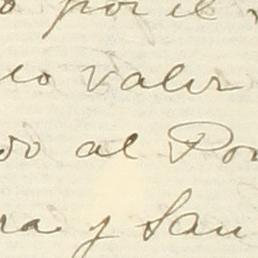 o por el
lo valer
do al Por
ra y San